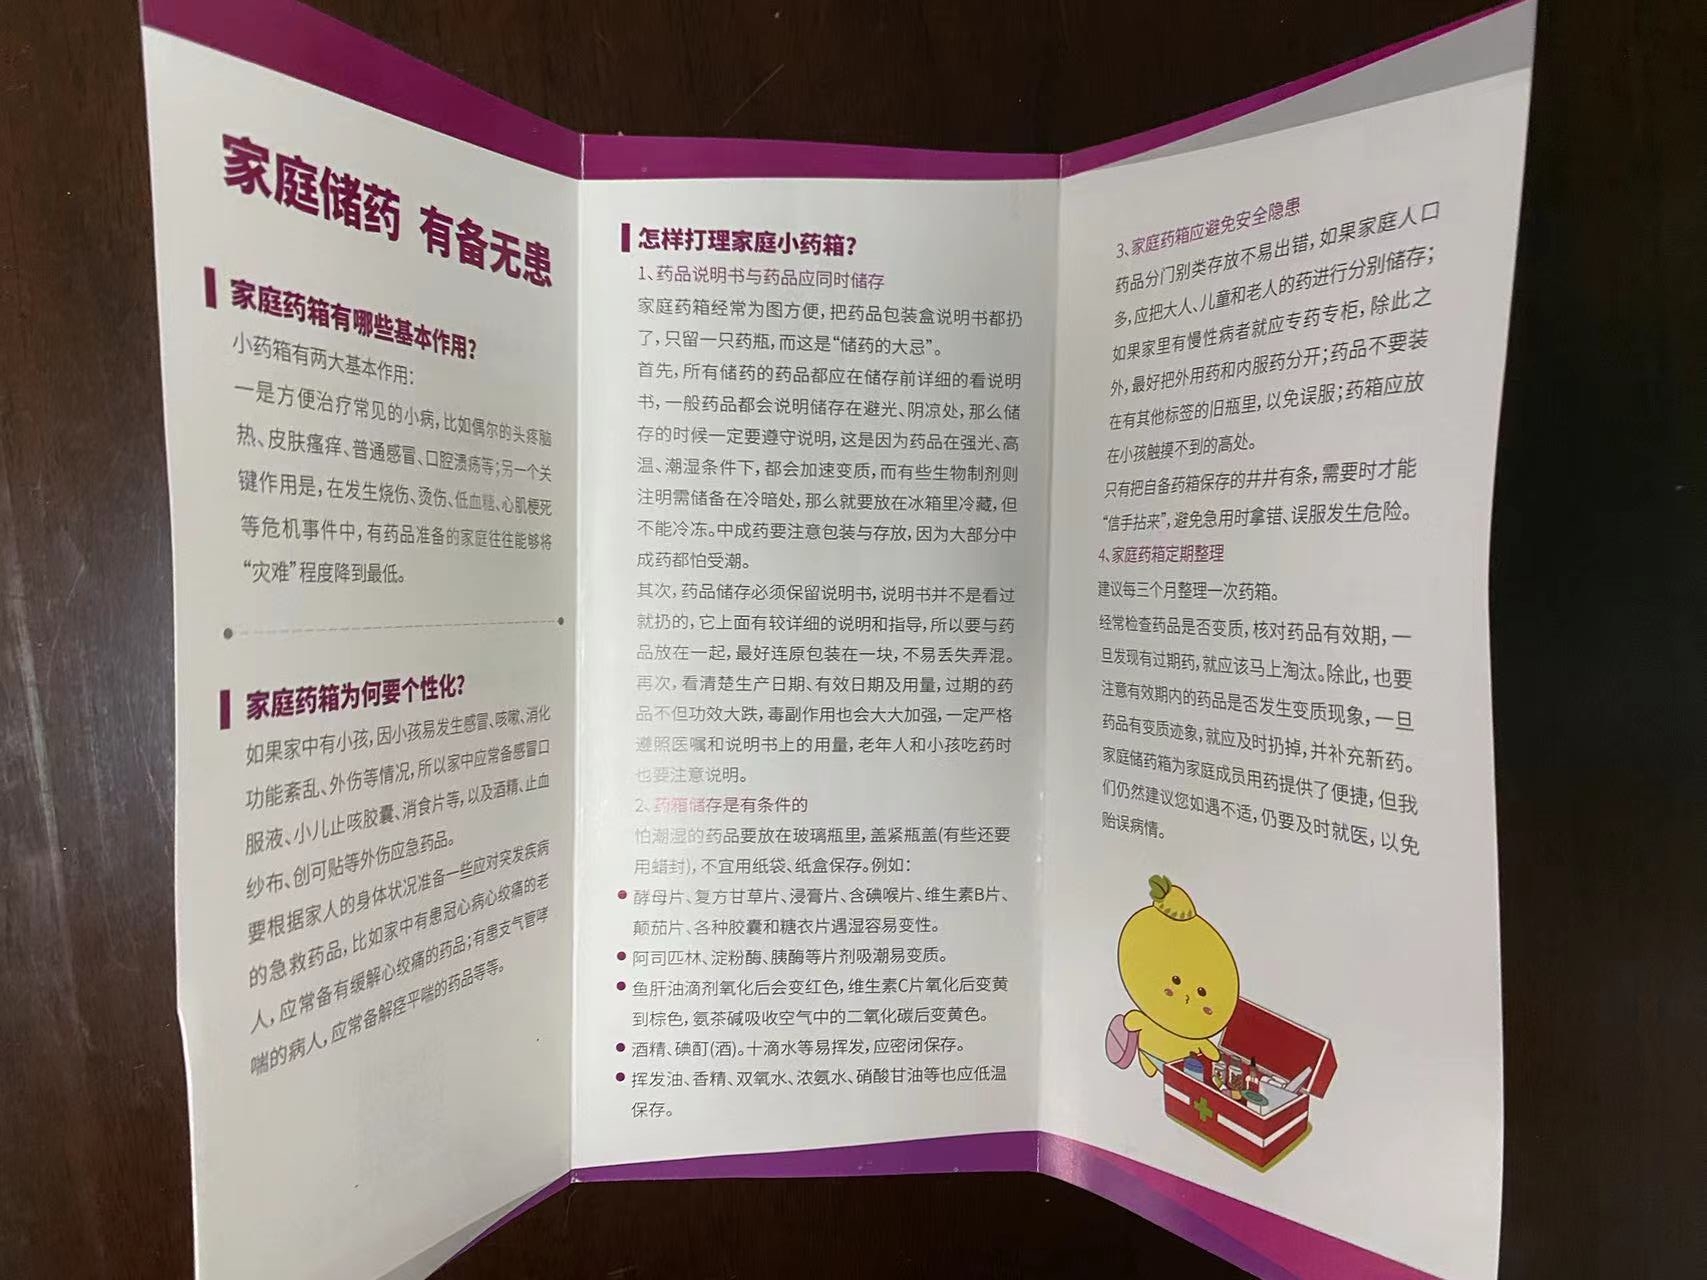 家庭储药 有备无患
家庭药箱有哪些基本作用?
小药箱有两大基本作用:
一是方便治疗常见的小病,比如偶尔的头疼脑
热、皮肤瘙痒、普通感冒、口腔溃疡等;另一个关
键作用是,在发生烧伤、烫伤、低血糖、心肌梗死
等危机事件中,有药品准备的家庭往往能够将
“灾难”程度降到最低。
家庭药箱为何要个性化?
如果家中有小孩,因小孩易发生感冒、咳嗽、消化
功能紊乱、外伤等情况,所以家中应常备感冒口
服液、小儿止咳胶囊、消食片等,以及酒精、止血
纱布、创可贴等外伤应急药品。
要根据家人的身体状况准备一些应对突发疾病
的急救药品,比如家中有患冠心病心绞痛的老
人,应常备有缓解心绞痛的药品;有患支气管哮
喘的病人,应常备解痉平喘的药品等等。
怎样打理家庭小药箱?
1、药品说明书与药品应同时储存
家庭药箱经常为图方便,把药品包装盒说明书都扔
了,只留一只药瓶,而这是“储药的大忌”。
首先,所有储药的药品都应在储存前详细的看说明
书,一般药品都会说明储存在避光、阴凉处,那么储
存的时候一定要遵守说明,这是因为药品在强光、高
温、潮湿条件下,都会加速变质,而有些生物制剂则
注明需储备在冷暗处,那么就要放在冰箱里冷藏,但
不能冷冻。中成药要注意包装与存放,因为大部分中
成药都怕受潮。
其次,药品储存必须保留说明书,说明书并不是看过
就扔的,它上面有较详细的说明和指导,所以要与药
品放在一起,最好连原包装在一块,不易丢失弄混。
再次,看清楚生产日期、有效日期及用量,过期的药
品不但功效大跌,毒副作用也会大大加强,一定严格
遵照医嘱和说明书上的用量,老年人和小孩吃药时
也要注意说明。
2、药箱储存是有条件的
怕潮湿的药品要放在玻璃瓶里,盖紧瓶盖(有些还要
用蜡封),不宜用纸袋、纸盒保存。例如:
● 酵母片、复方甘草片、浸膏片、含碘喉片、维生素B片、
颠茄片、各种胶囊和糖衣片遇湿容易变性。
● 阿司匹林、淀粉酶、胰酶等片剂吸潮易变质。
● 鱼肝油滴剂氧化后会变红色,维生素C片氧化后变黄
到棕色,氨茶碱吸收空气中的二氧化碳后变黄色。
● 酒精、碘酊(酒)。十滴水等易挥发,应密闭保存。
● 挥发油、香精、双氧水、浓氨水、硝酸甘油等也应低温
保存。
3、家庭药箱应避免安全隐患
药品分门别类存放不易出错,如果家庭人口
多,应把大人、儿童和老人的药进行分别储存;
如果家里有慢性病者就应专药专柜,除此之
外,最好把外用药和内服药分开;药品不要装
在有其他标签的旧瓶里,以免误服;药箱应放
在小孩触摸不到的高处。
只有把自备药箱保存的井井有条,需要时才能
“信手拈来”,避免急用时拿错、误服发生危险。
4、家庭药箱定期整理
建议每三个月整理一次药箱。
经常检查药品是否变质,核对药品有效期,一
旦发现有过期药,就应该马上淘汰。除此,也要
注意有效期内的药品是否发生变质现象,一旦
药品有变质迹象,就应及时扔掉,并补充新药。
家庭储药箱为家庭成员用药提供了便捷,但我
们仍然建议您如遇不适,仍要及时就医,以免
贻误病情。